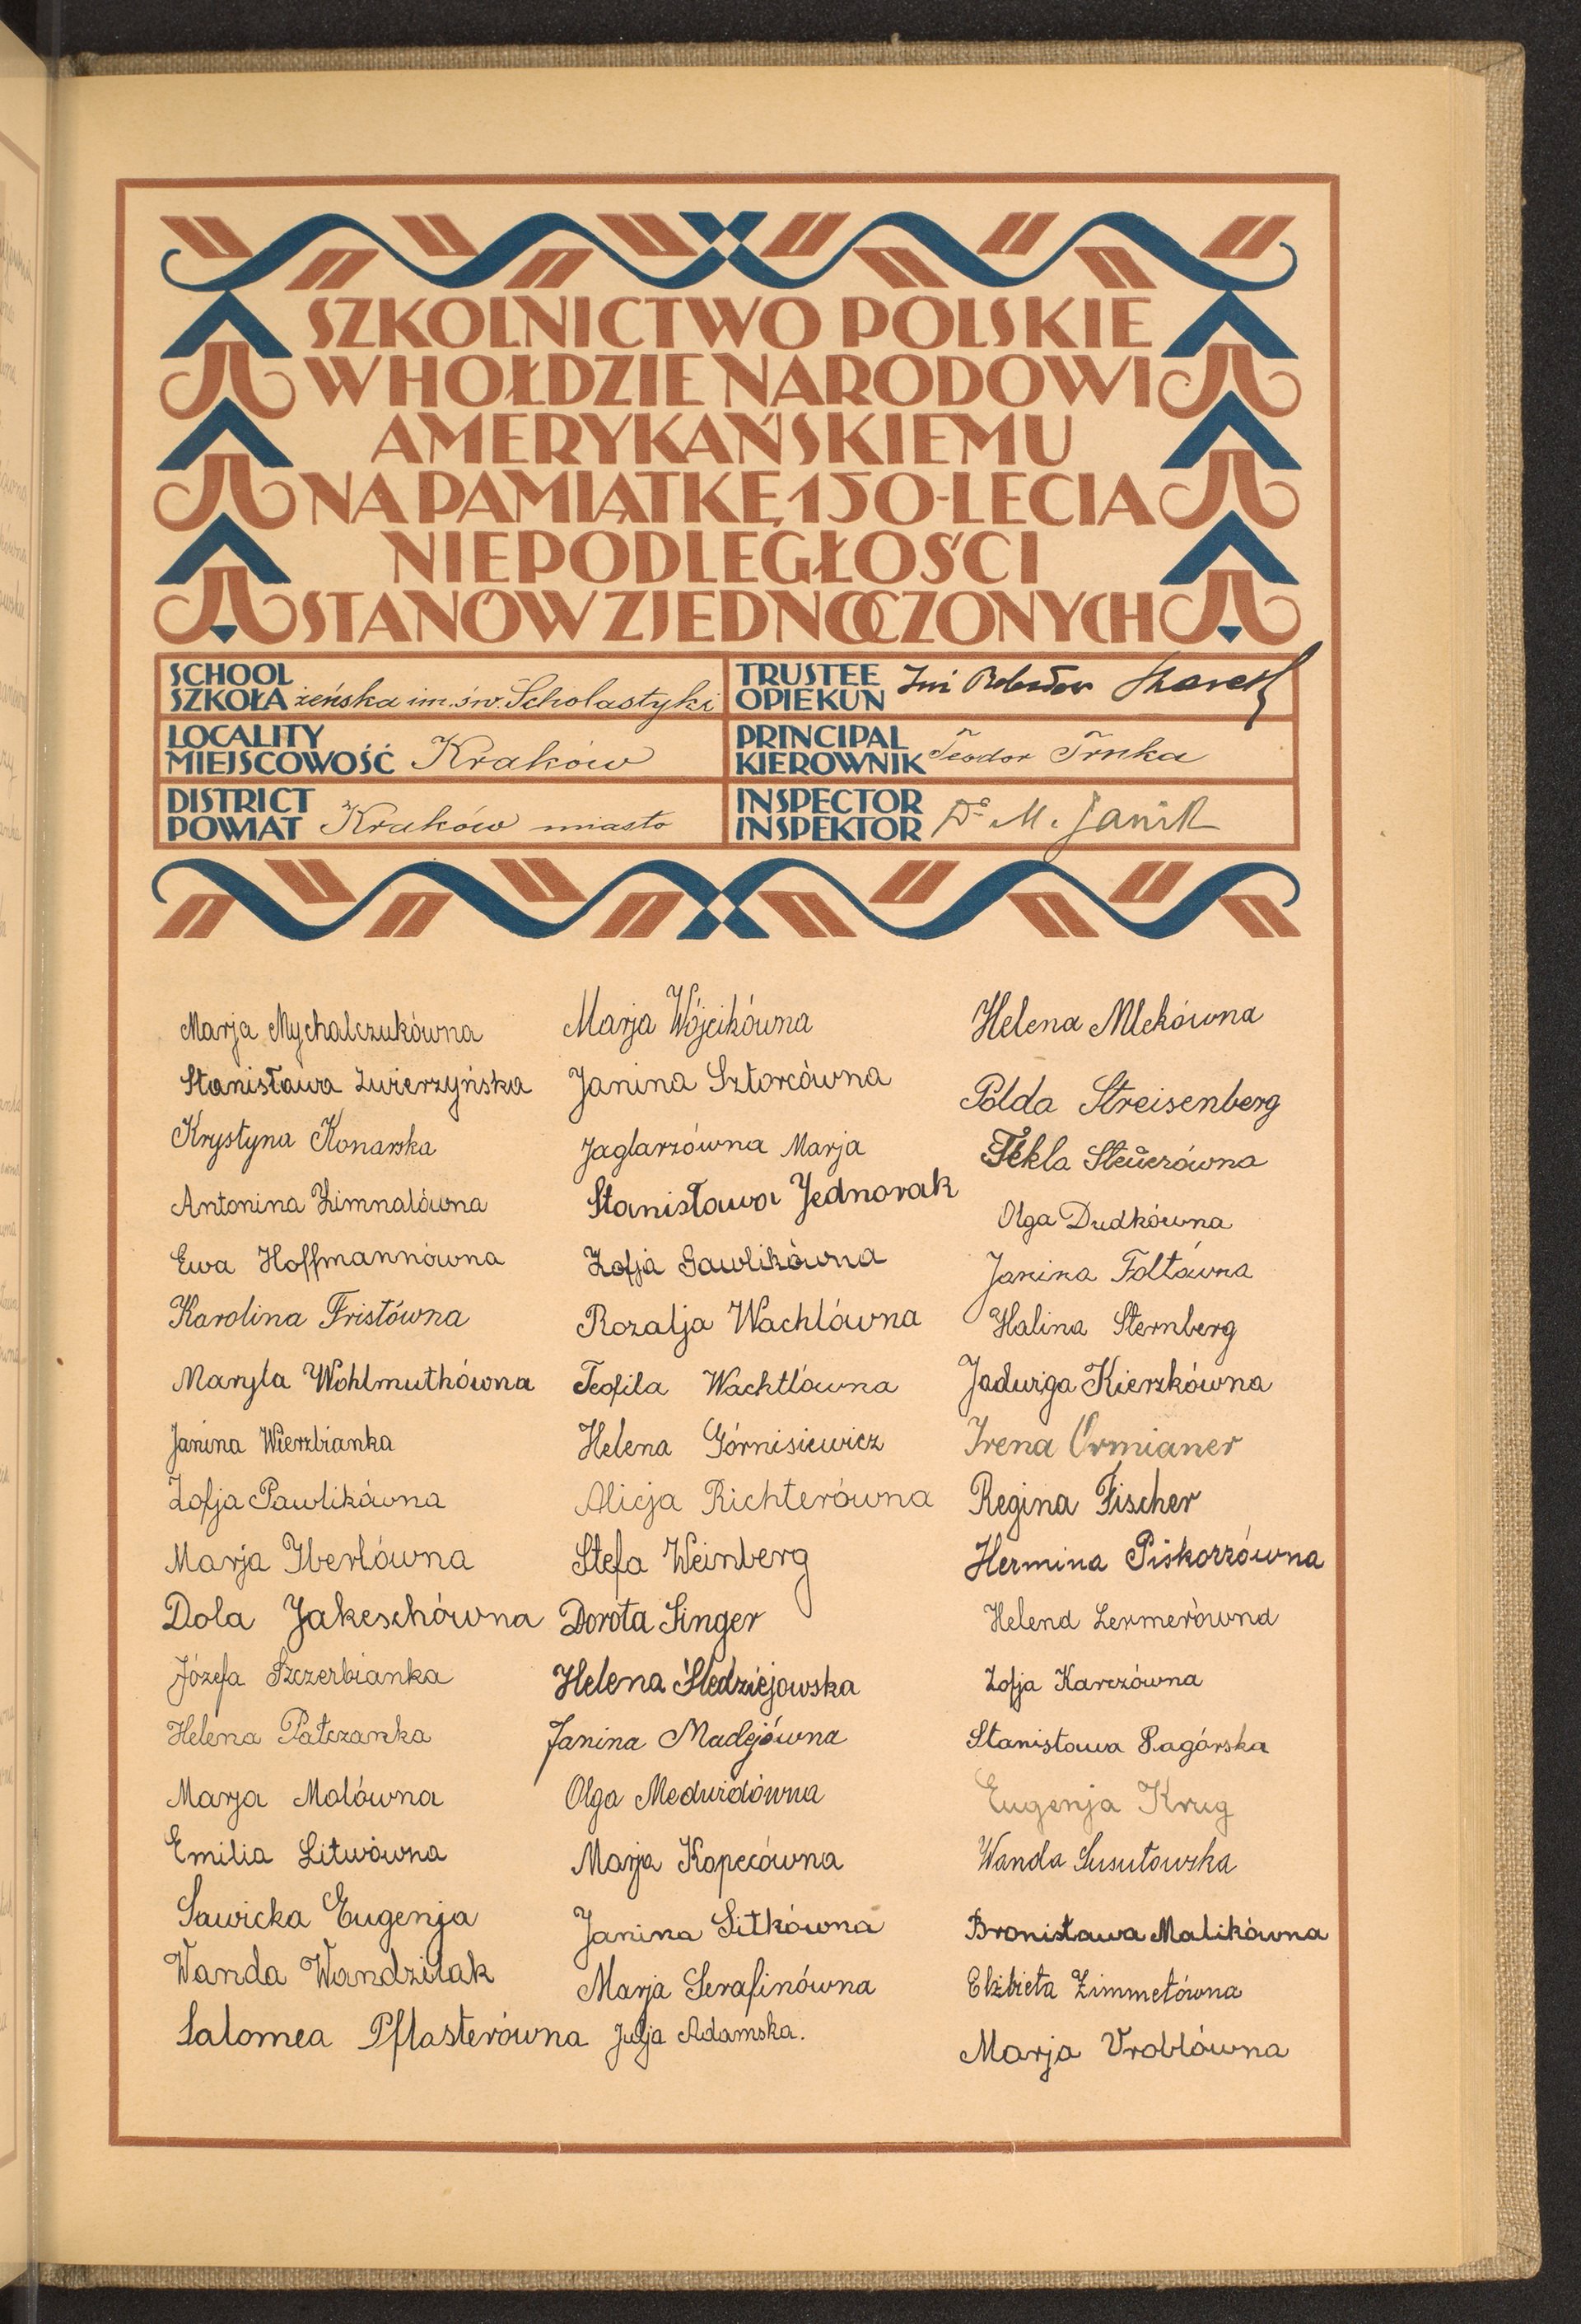 SZKOLNICTWO POLSKIE
W HOŁDZIE NARODOWI
AMERYKAŃSKIEMU
NA PAMIĄTKĘ 150-LECIA
NIEPODLEGŁOŚCI
STANÓW ZJEDNOCZONYCH
SCHOOL
SZKOŁA żeńska im. św. Scholastyki
TRUSTEE
OPIEKUN
LOCALITY
MIEJSCOWOŚĆ Kraków
PRINCIPAL
KIEROWNIK Teodor Trnka
DISTRICT
POWIAT Kraków miasto
INSPECTOR
INSPEKTOR Dr M. Janik
Marja Mychalczukówna
Stanisława Zwierzyńska
Krystyna Konarska
Antonina Zimnalówna
Ewa Hoffmannówna
Karolina Fristówna
Maryla Wohlmuthówna
Janina Wierzbianka
Zofja Pawlikówna
Marja Iberlówna
Dola Jakeschówna
Józefa Szczerbianka
Helena Pałczanka
Marja Molówna
Emilia Litwówna
Sawicka Eugenja
Wanda Wandzilak
Salomea Pflasterówna
Marja Wójcikówna
Janina Sztorcówna
Jaglarzówna Marja
Stanisława Jednorak
Zofja Gawlikówna
Rozalja Wachlówna
Teofila Wachtlówna
Helena Górnisiewicz
Alicja Richterówna
Stefa Weinberg
Dorota Singer
Helena Śledziejowska
Janina Madejówna
Olga Medwidówna
Marja Kopecówna
Janina Sitkówna
Marja Serafinówna
Julja Adamska.
Helena Mlekówna
Polda Streisenberg
Tekla Steuerówna
Olga Dudkówna
Janina Foltówna
Halina Sternberg
Jadwiga Kierzkówna
Irena Ormianer
Regina Fischer
Hermina Piskorzówna
Helena Lermerówna
Zofja Karczówna
Stanisława Pagórska
Eugenja Krug
Wanda Susułowska
Bronisława Malikówna
Elżbieta Zimmetówna
Marja Vroblówna